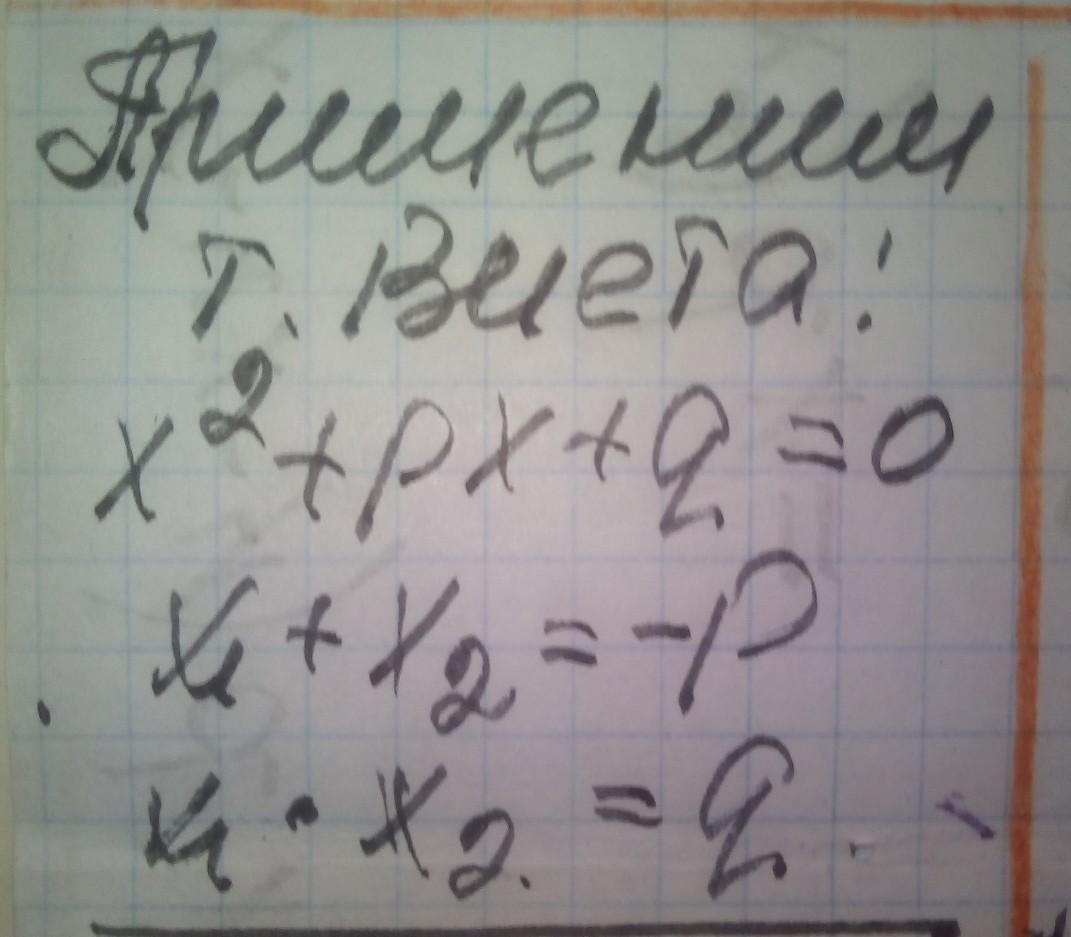 Применим
т. Виета:
x² + px + q = 0
x₁ + x₂ = -p
x₁ · x₂ = q